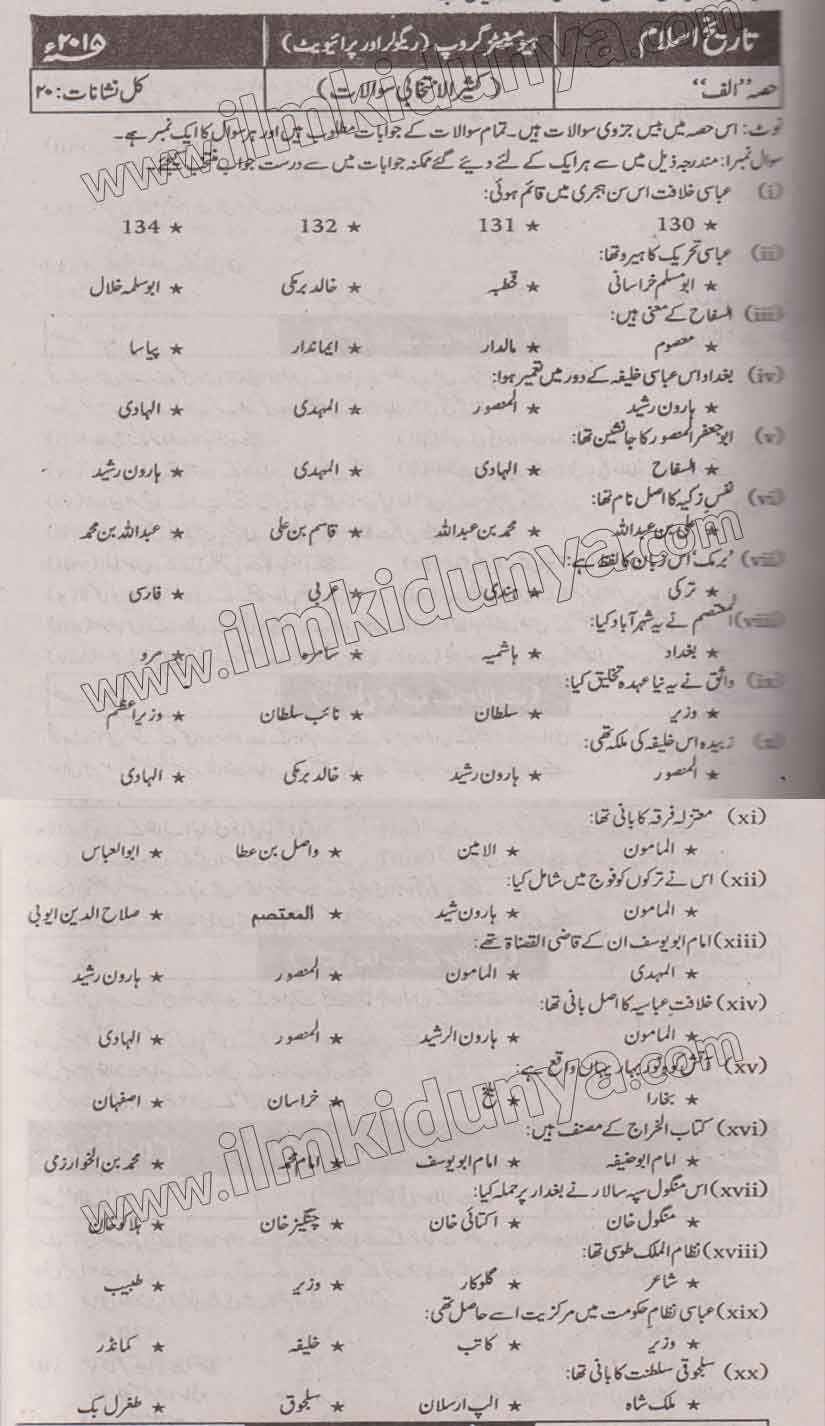 تاریخ اسلام ہیومینٹیز گروپ (ریگولر اور پرائیویٹ) ۲۰۱۵ء
حصہ "الف" (کثیر الانتخابی سوالات) کل نشانات: ۲۰
نوٹ: اس حصہ میں بیس جزوی سوالات ہیں۔ تمام سوالات کے جوابات مطلوب ہیں اور ہر سوال کا ایک نمبر ہے۔
سوال نمبر۱: مندرجہ ذیل میں سے ہر ایک کے لئے دیئے گئے ممکنہ جوابات میں سے درست جواب منتخب کیجئے۔
(i) عباسی خلافت اس سن ہجری میں قائم ہوئی:
★ 130 ★ 131 ★ 132 ★ 134
(ii) عباسی تحریک کا ہیرو تھا:
★ ابو مسلم خراسانی ★ قحطبہ ★ خالد برمکی ★ ابو سلمہ خلال
(iii) السفاح کے معنی ہیں:
★ معصوم ★ مالدار ★ ایماندار ★ پیاسا
(iv) بغداد اس عباسی خلیفہ کے دور میں تعمیر ہوا:
★ ہارون رشید ★ المنصور ★ المہدی ★ الہادی
(v) ابو جعفر المنصور کا جانشین تھا:
★ السفاح ★ الہادی ★ المہدی ★ ہارون رشید
(vi) نفس زکیہ کا اصل نام تھا:
★ علی بن عبداللہ ★ محمد بن عبداللہ ★ قاسم بن علی ★ عبداللہ بن محمد
(vii) 'برمک' اس زبان کا لفظ ہے:
★ ترکی ★ ہندی ★ عربی ★ فارسی
(viii) المعتصم نے یہ شہر آباد کیا:
★ بغداد ★ ہاشمیہ ★ سامرہ ★ مرو
(ix) واثق نے یہ نیا عہدہ تخلیق کیا:
★ وزیر ★ سلطان ★ نائب سلطان ★ وزیر اعظم
(x) زبیدہ اس خلیفہ کی ملکہ تھی:
★ المنصور ★ ہارون رشید ★ خالد برمکی ★ الہادی
(xi) معتزلہ فرقہ کا بانی تھا:
★ المامون ★ الامین ★ واصل بن عطا ★ ابوالعباس
(xii) اس نے ترکوں کو فوج میں شامل کیا:
★ المامون ★ ہارون رشید ★ المعتصم ★ صلاح الدین ایوبی
(xiii) امام ابو یوسف ان کے قاضی القضاة تھے:
★ المہدی ★ المامون ★ المنصور ★ ہارون رشید
(xiv) خلافت عباسیہ کا اصل بانی تھا:
★ المامون ★ ہارون الرشید ★ المنصور ★ الہادی
(xv) آتش کدہ نوبہار یہاں واقع ہے:
★ بخارا ★ بلخ ★ خراسان ★ اصفہان
(xvi) کتاب الخراج کے مصنف ہیں:
★ امام ابو حنیفہ ★ امام ابو یوسف ★ امام محمد ★ محمد بن الخوارزمی
(xvii) اس منگول سپہ سالار نے بغداد پر حملہ کیا:
★ منگول خان ★ اکتائی خان ★ چنگیز خان ★ ہلاکو خان
(xviii) نظام الملک طوسی تھا:
★ شاعر ★ گلوکار ★ وزیر ★ طبیب
(xix) عباسی نظام حکومت میں مرکزیت اسے حاصل تھی:
★ وزیر ★ کاتب ★ خلیفہ ★ کمانڈر
(xx) سلجوقی سلطنت کا بانی تھا:
★ ملک شاہ ★ الپ ارسلان ★ سلجوق ★ طغرل بک
www.ilmkidunya.com
www.ilmkidunya.com
www.ilmkidunya.com